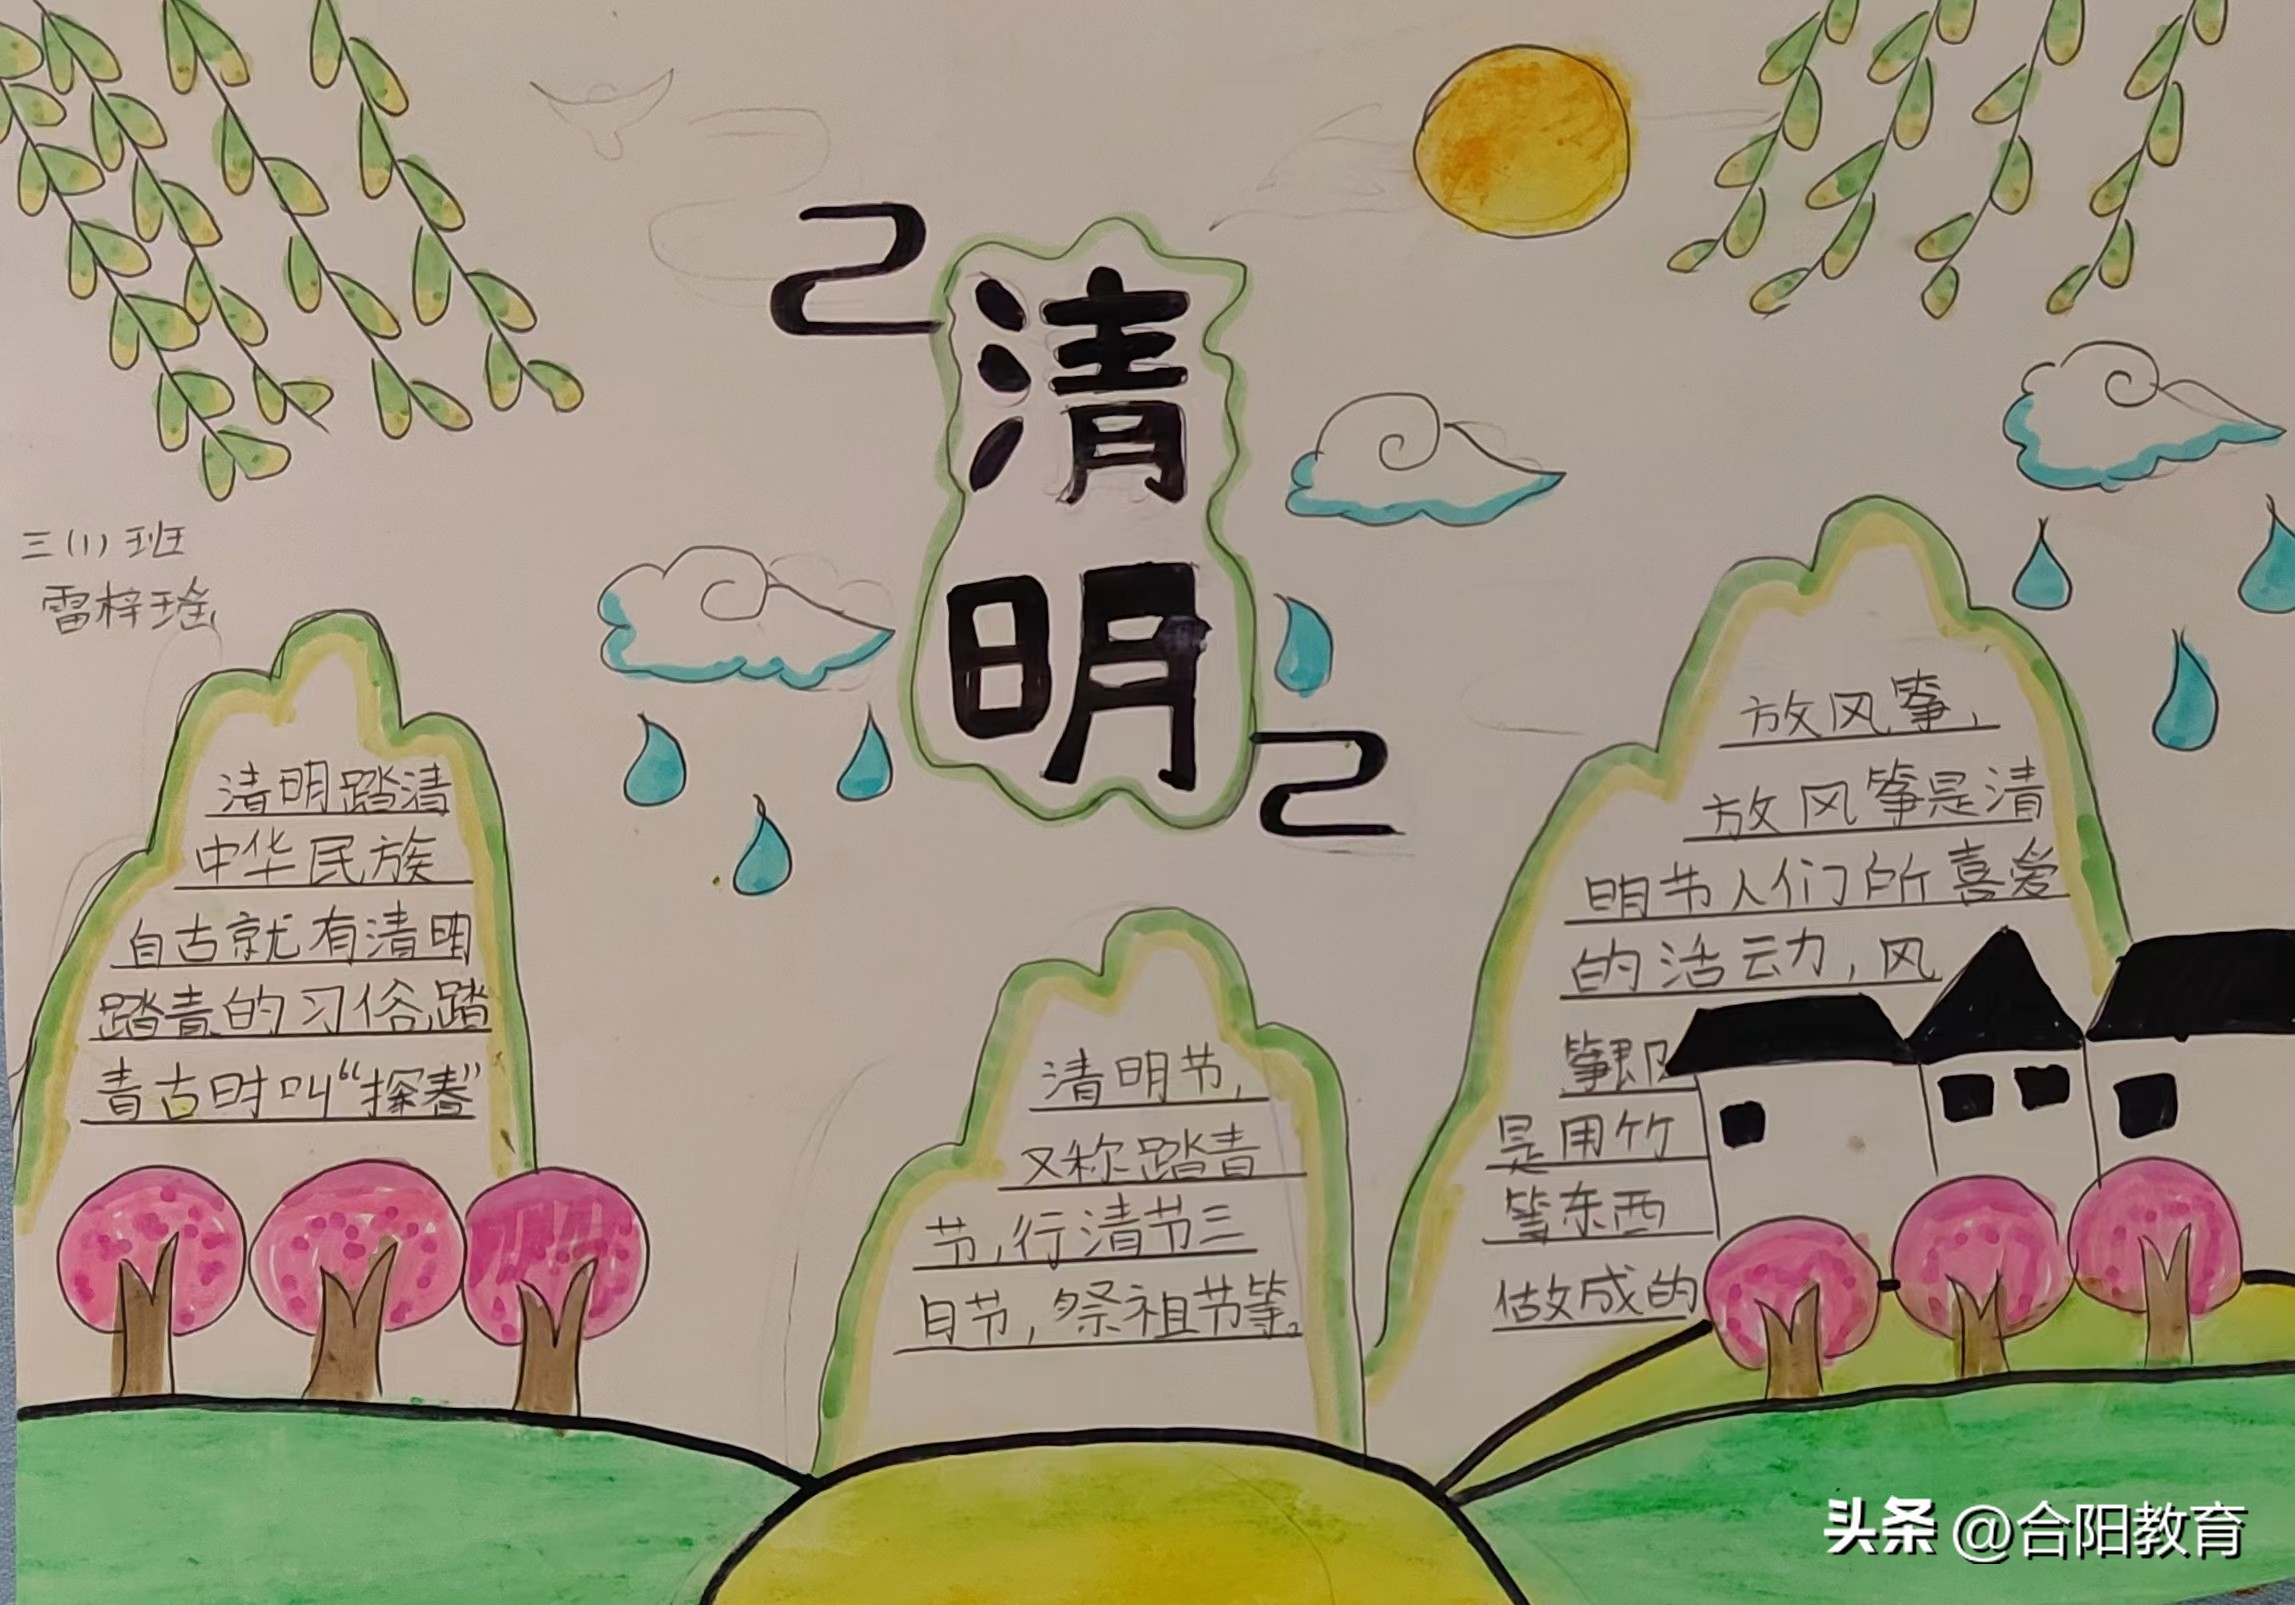 清明
三(1)班
雷梓瑶
清明踏清
中华民族
自古就有清明
踏青的习俗,踏
青古时叫“探春”
清明节,
又称踏青
节,行清节三
日节,祭祖节等。
放风筝,
放风筝是清
明节人们所喜爱
的活动,风
筝即
是用竹
等东西
做成的
头条 @合阳教育